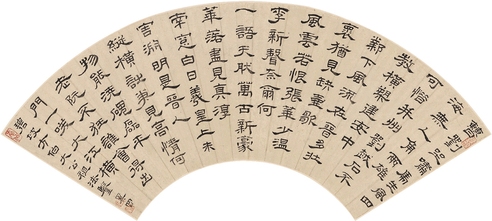 曹劉坐嘯虎生風四
海無人角兩雄
可惜并州劉越石不
教橫槊建安中
鄴下風流在晉多壯
懷猶見缺壺歌
風雲若恨張華少溫
李新聲奈爾何
一語天然萬古新豪
華落盡見真淳
南窗白日羲皇上未
害淵明是晉人
縱橫詩筆見高情何
物能澆磈磊平
老阮不狂誰會得出
門一笑大江橫